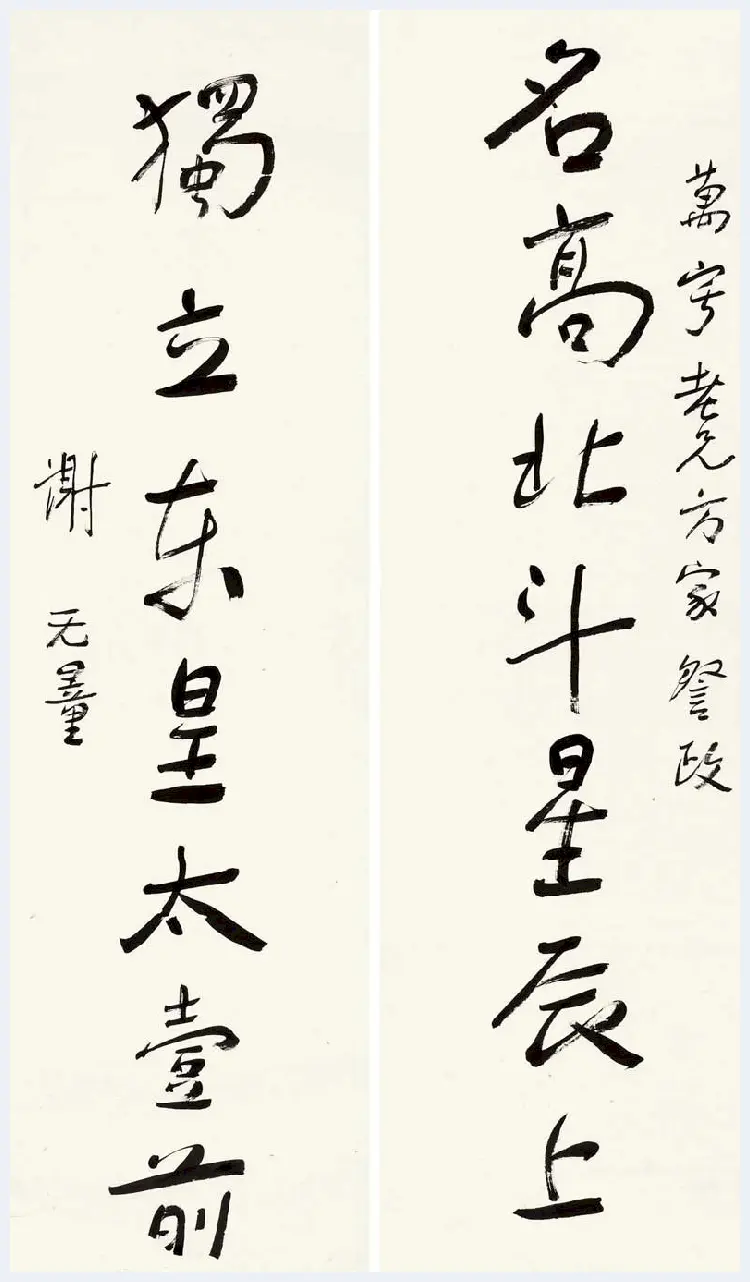 萬寧老兄方家詧政
名高北斗星辰上
獨立東皇太壹前
謝无量